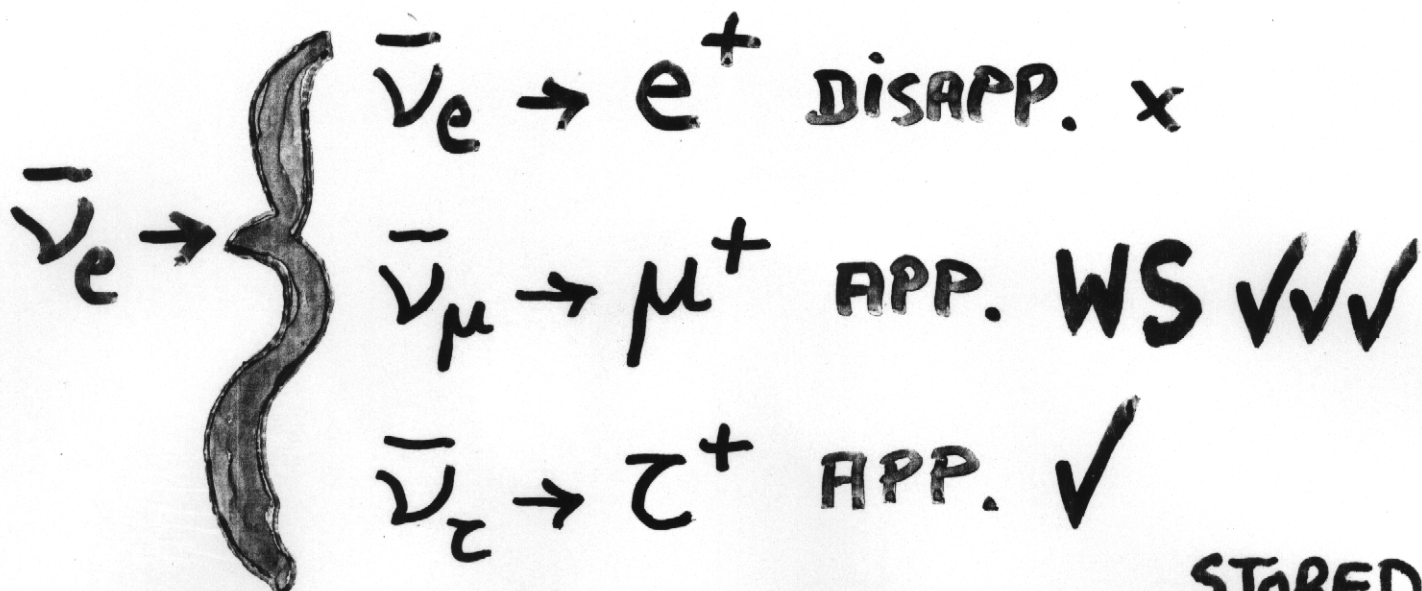 ν̅e → e⁺ DISAPP. x
ν̅e → { ν̅μ → μ⁺ APP. WS ✓✓✓
ν̅τ → τ⁺ APP. ✓
STORED